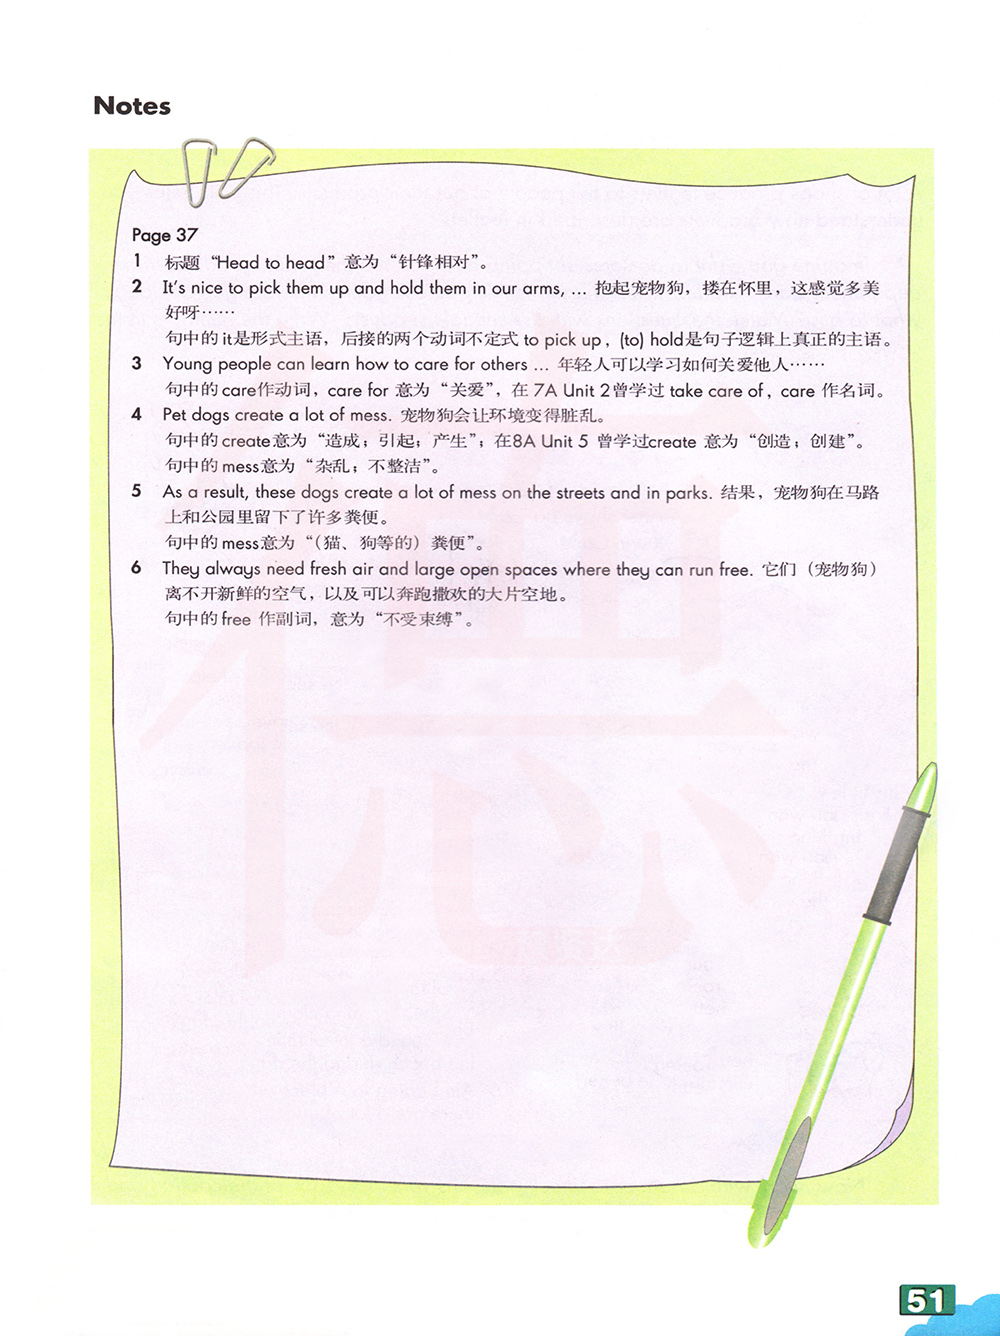 Notes
Page 37
1 标题“Head to head”意为“针锋相对”。
2 It's nice to pick them up and hold them in our arms, ... 抱起宠物狗，搂在怀里，这感觉多美
好呀……
句中的it是形式主语，后接的两个动词不定式 to pick up，(to) hold是句子逻辑上真正的主语。
3 Young people can learn how to care for others ... 年轻人可以学习如何关爱他人……
句中的care作动词，care for 意为“关爱”，在 7A Unit 2曾学过 take care of，care 作名词。
4 Pet dogs create a lot of mess. 宠物狗会让环境变得脏乱。
句中的create意为“造成；引起；产生”；在8A Unit 5 曾学过create 意为“创造；创建”。
句中的mess意为“杂乱；不整洁”。
5 As a result, these dogs create a lot of mess on the streets and in parks. 结果，宠物狗在马路
上和公园里留下了许多粪便。
句中的mess意为“（猫、狗等的）粪便”。
6 They always need fresh air and large open spaces where they can run free. 它们（宠物狗）
离不开新鲜的空气，以及可以奔跑撒欢的大片空地。
句中的free 作副词，意为“不受束缚”。
51